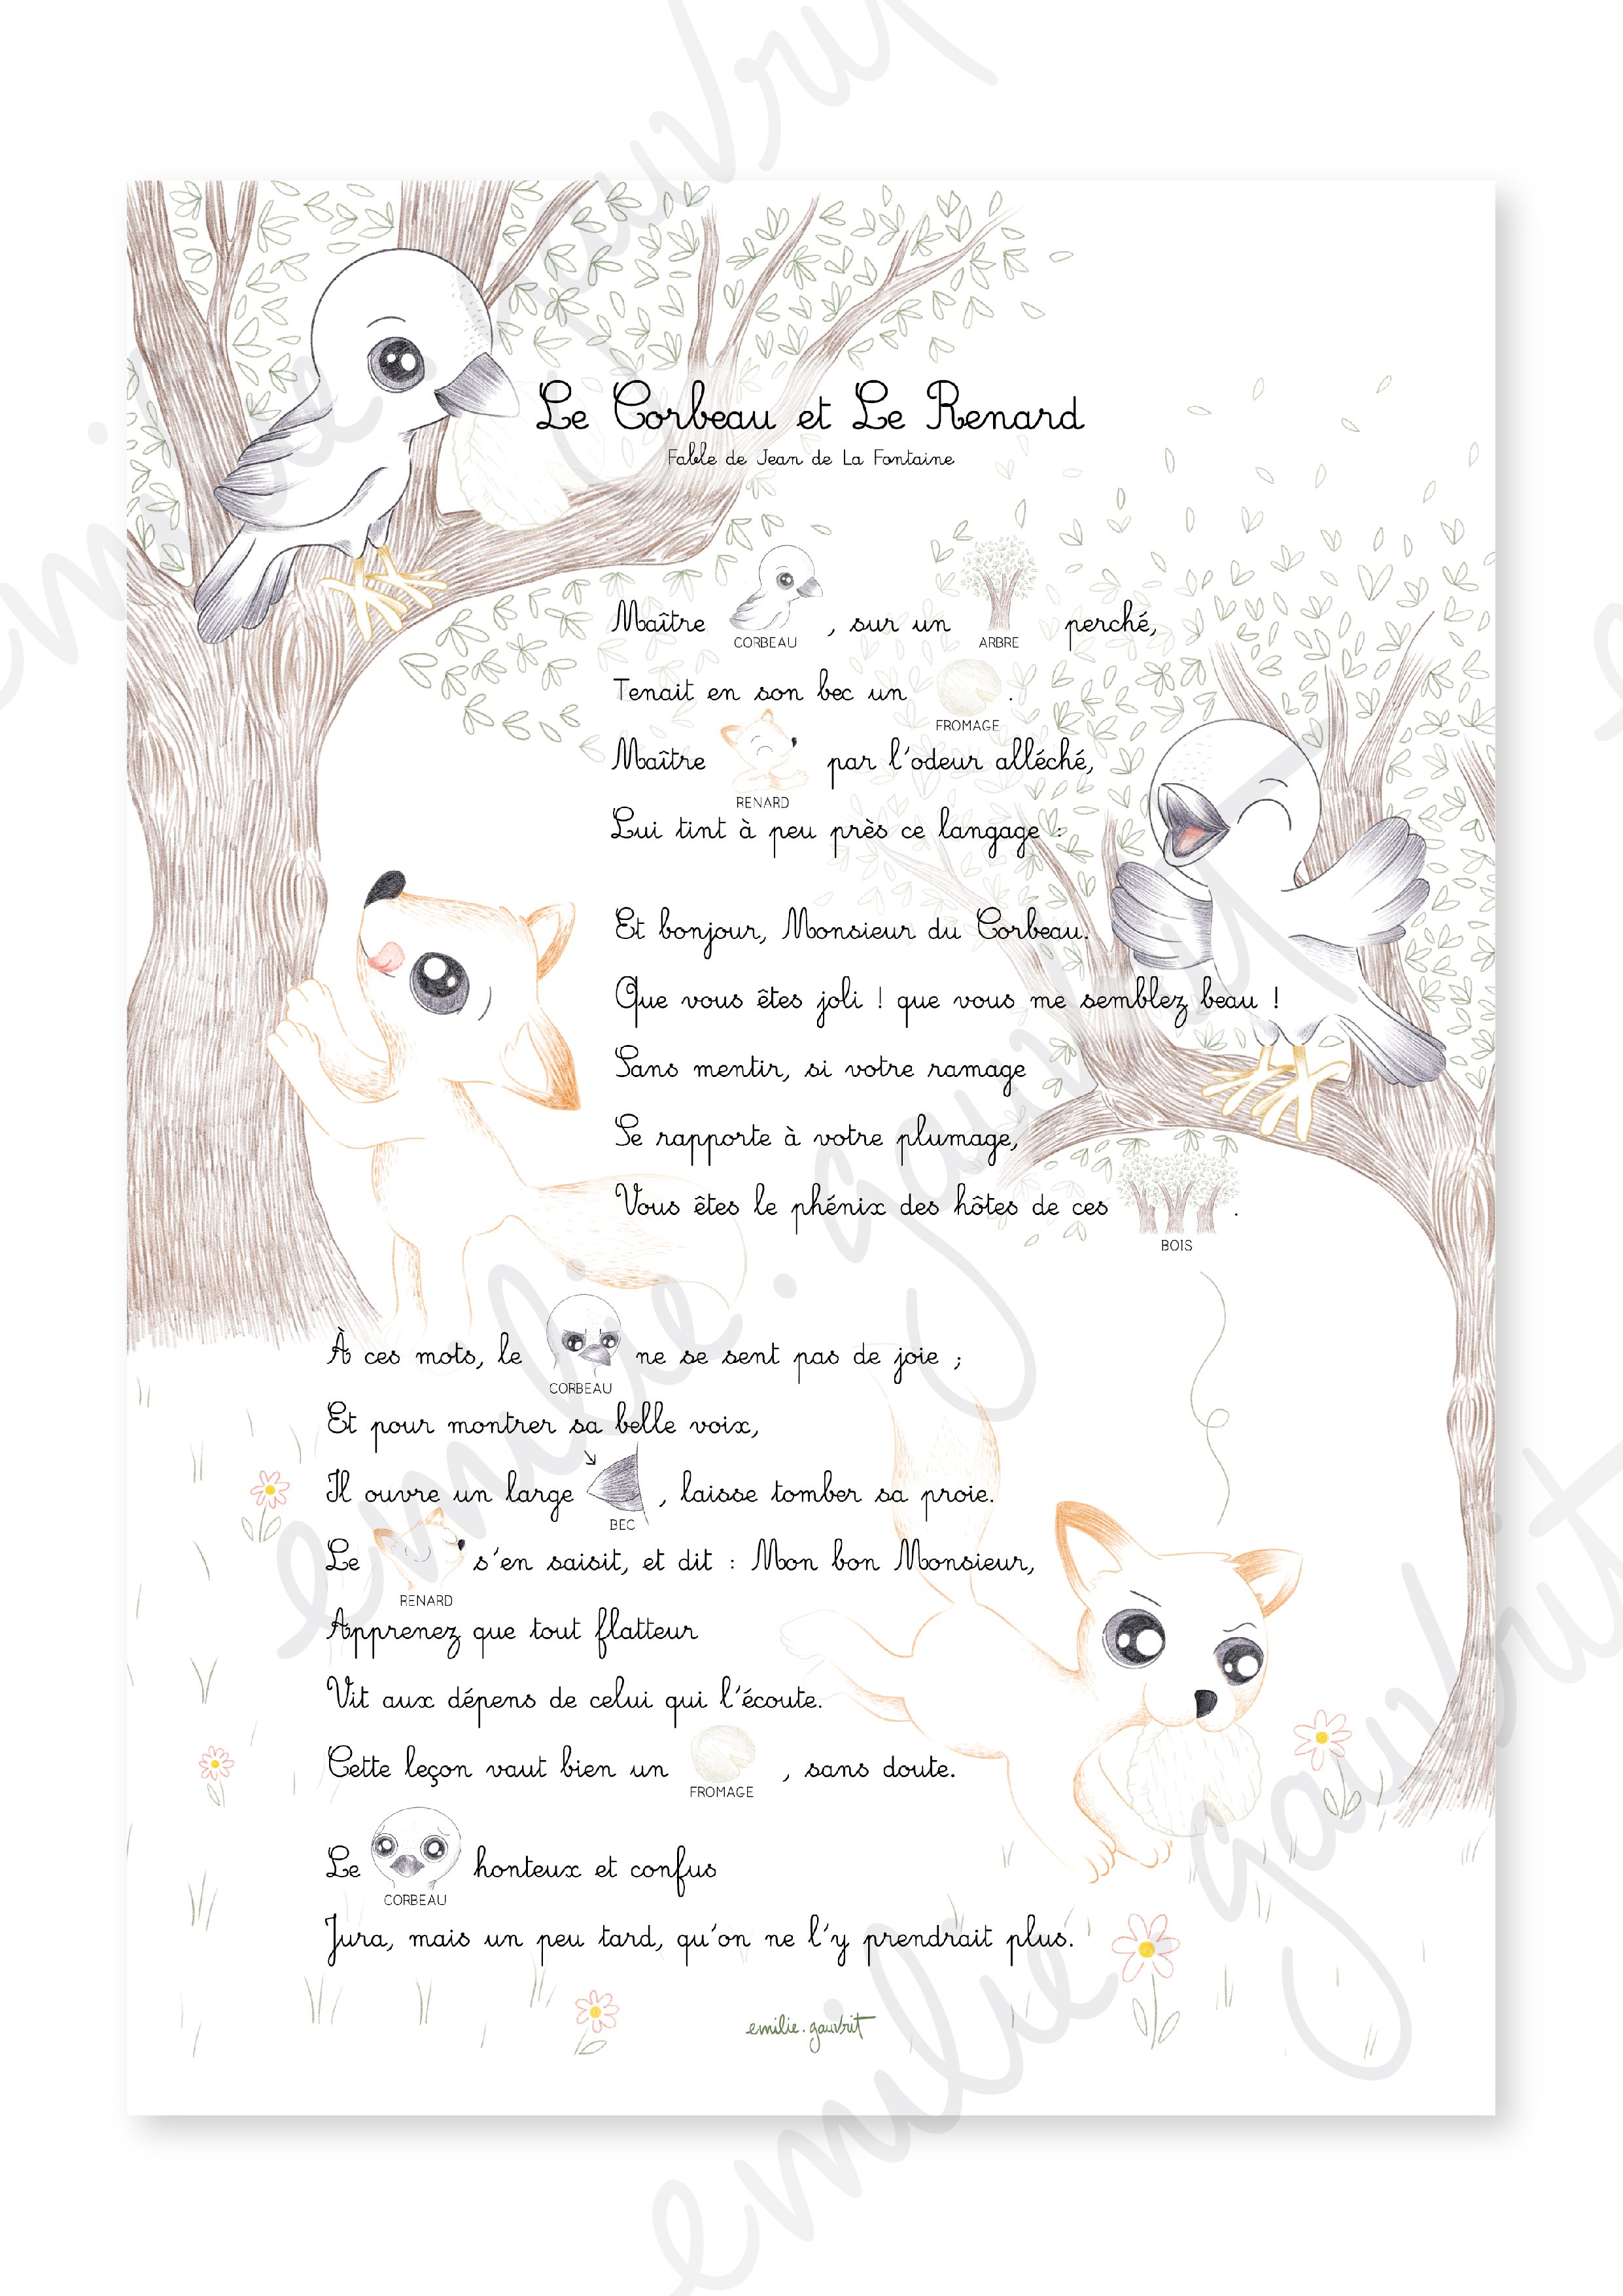 Le Corbeau et Le Renard
Fable de Jean de La Fontaine
Maître CORBEAU, sur un ARBRE perché,
Tenait en son bec un FROMAGE.
Maître RENARD par l'odeur alléché,
Lui tint à peu près ce langage :
Et bonjour, Monsieur du Corbeau.
Que vous êtes joli ! que vous me semblez beau !
Sans mentir, si votre ramage
Se rapporte à votre plumage,
Vous êtes le phénix des hôtes de ces BOIS.
À ces mots, le CORBEAU ne se sent pas de joie ;
Et pour montrer sa belle voix,
Il ouvre un large BEC, laisse tomber sa proie.
Le RENARD s'en saisit, et dit : Mon bon Monsieur,
Apprenez que tout flatteur
Vit aux dépens de celui qui l'écoute.
Cette leçon vaut bien un FROMAGE, sans doute.
Le CORBEAU honteux et confus
Jura, mais un peu tard, qu'on ne l'y prendrait plus.
emilie.gauvrit
emilie.gauvrit
emilie.gauvrit
emilie.gauvrit